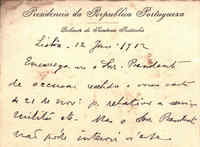 Presidencia da Republica Portugueza
Gabinete do Secretario Particular
Lisboa, 12 1912
Encarrega-me o Snr. Presidente
de accusar recebida a sua carta
de 21 de relativa a serviço
militar etc. Mas o Snr Presidente
não póde intervir